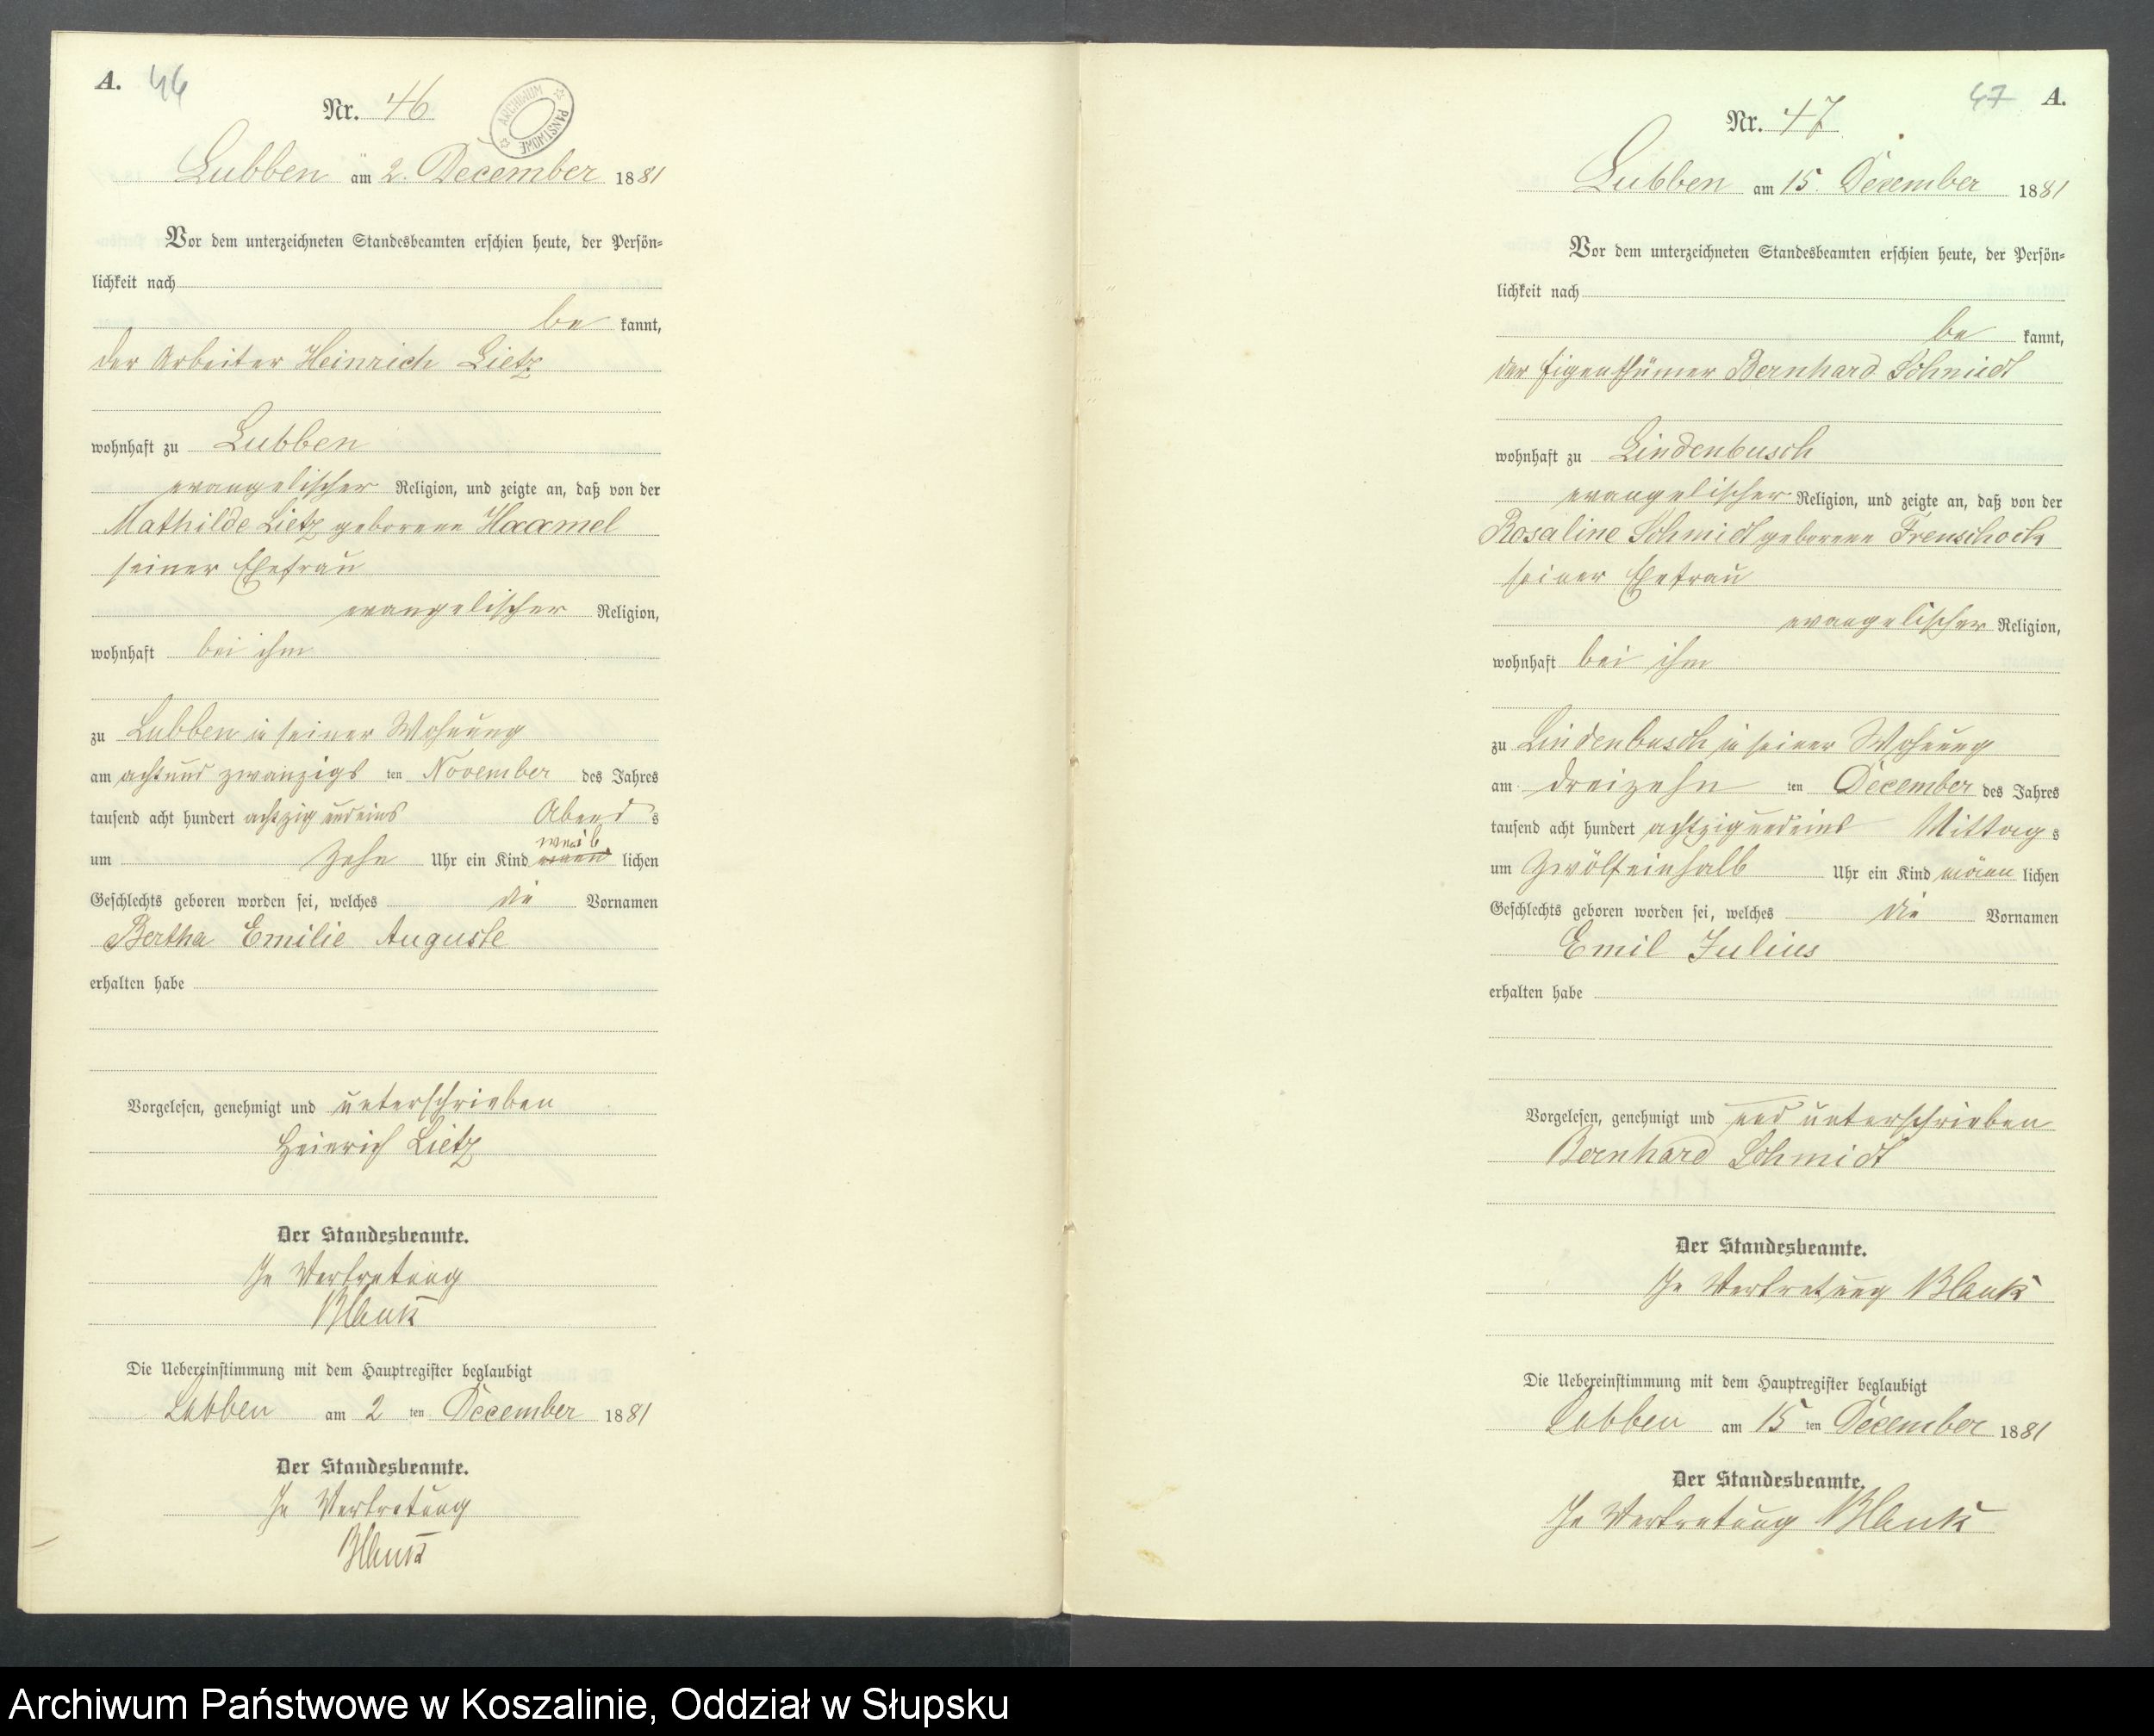 A. 46
Nr. 46
ARCHIWUM PAŃSTWOWE
Lubben am 2. December 1881
Vor dem unterzeichneten Standesbeamten erschien heute, der Persön-
lichkeit nach
be kannt,
der Arbeiter Heinrich Lietz
wohnhaft zu Lubben
evangelischer Religion, und zeigte an, daß von der
Mathilde Lietz geborene Haamel
seiner Ehefrau
evangelischer Religion,
wohnhaft bei ihm
zu Lubben in seiner Wohnung
am achtund zwanzigs ten November des Jahres
tausend acht hundert achtzig undeins Abend s
um zehn Uhr ein Kind weib lichen
Geschlechts geboren worden sei, welches die Vornamen
Bertha Emilie Auguste
erhalten habe
Vorgelesen, genehmigt und unterschrieben
Heinrich Lietz
Der Standesbeamte.
In Vertretung
Blank
Die Uebereinstimmung mit dem Hauptregister beglaubigt
Lubben am 2 ten December 1881
Der Standesbeamte.
In Vertretung
Blank
47 A.
Nr. 47
Lubben am 15. December 1881
Vor dem unterzeichneten Standesbeamten erschien heute, der Persön-
lichkeit nach
be kannt,
der Eigenthümer Bernhard Schmidt
wohnhaft zu Lindenbusch
evangelischer Religion, und zeigte an, daß von der
Rosaline Schmidt geborene Frenschock
seiner Ehefrau
evangelischer Religion,
wohnhaft bei ihm
zu Lindenbusch in seiner Wohnung
am dreizehn ten December des Jahres
tausend acht hundert achtzigundeins Mittag s
um zwölfeinhalb Uhr ein Kind männ lichen
Geschlechts geboren worden sei, welches die Vornamen
Emil Julius
erhalten habe
Vorgelesen, genehmigt und und unterschrieben
Bernhard Schmidt
Der Standesbeamte.
In Vertretung Blank
Die Uebereinstimmung mit dem Hauptregister beglaubigt
Lubben am 15 ten December 1881
Der Standesbeamte.
In Vertretung Blank
Archiwum Państwowe w Koszalinie, Oddział w Słupsku